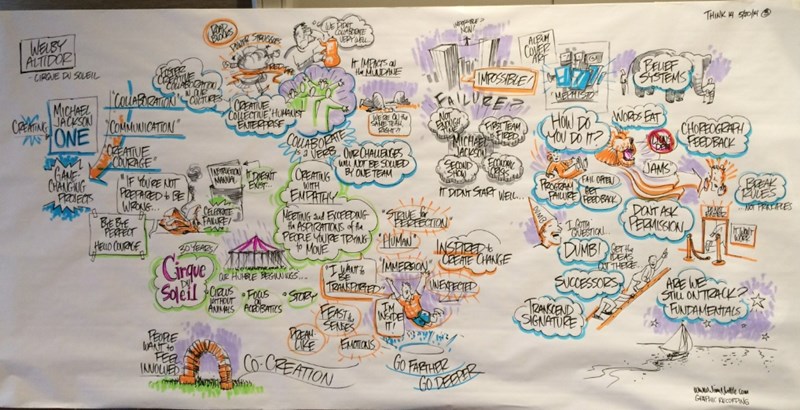 WELBY
ALTIDOR
- CIRQUE DU SOLEIL
CREATING
MICHAEL
JACKSON
ONE
GAME
CHANGING
PROJECTS
"COLLABORATION"
"COMMUNICATION"
"CREATIVE
COURAGE"
FOSTER
CREATIVE
COLLABORATION
IN
CULTURES
"IF YOU'RE NOT
PREPARED TO BE
WRONG...
BYE BYE
PERFECT
HELLO COURAGE
INSTRUCTION
MANUAL
IT DOESN'T
EXIST...
CELEBRATE
FAILURE!
POWER STRUGGLES
WE DIDN'T
COLLABORATE
VERY WELL
IT IMPACTS ON
THE MUNDANE
CREATIVE
COLLECTIVE HUMANIST
ENTERPRISE
WE'RE ON THE
SAME TEAM,
RIGHT?
COLLABORATE
IS A VERB
OUR CHALLENGES
WILL NOT BE SOLVED
BY ONE TEAM
CREATING
WITH
EMPATHY
MEETING AND EXCEEDING
THE ASPIRATIONS OF
THE PEOPLE YOU'RE TRYING
TO MOVE
30 YEARS!
CIRQUE
DU
SOLEIL
HUMBLE BEGINNINGS...
CIRCUS
WITHOUT
ANIMALS
FOCUS
ON
ACROBATICS
STORY
PEOPLE
WANT TO
FEEL
INVOLVED
CO-CREATION
"STRIVE FOR
PERFECTION"
"HUMAN"
"IMMERSION"
INSPIRED TO
CREATE CHANGE
UNEXPECTED
"I WANT TO
BE
TRANSPORTED
I'M
INSIDE
IT!
FEAST
SENSES
DREAM
LIKE
EMOTIONS
GO FARTHER
GO DEEPER
NOW!
IMPOSSIBLE!
FAILURE?
NOT
ENOUGH
FIRST TEAM
FIRED
MICHAEL
JACKSON
SECOND
SHOW
ECONOMIC
CRISIS
IT DIDN'T START WELL...
ALBUM
COVER
ART
BELIEF
SYSTEMS
HOW DO
YOU DO IT?
WORDS EAT
CHOREOGRAPH
FEEDBACK
JAMS
PROGRAM
FAILURE
FAIL OFTEN
GET
FEEDBACK
DON'T ASK
PERMISSION
BREAK
RULES
NOT PRINCIPLES
I GOTTA
QUESTION...
DUMB!
GET THE
IDEAS
OUT THERE...
SUCCESSORS
TRANSCEND
SIGNATURE
ARE WE
STILL ON TRACK?
FUNDAMENTALS
THINK 14 5/20/14
GRAPHIC RECORDING